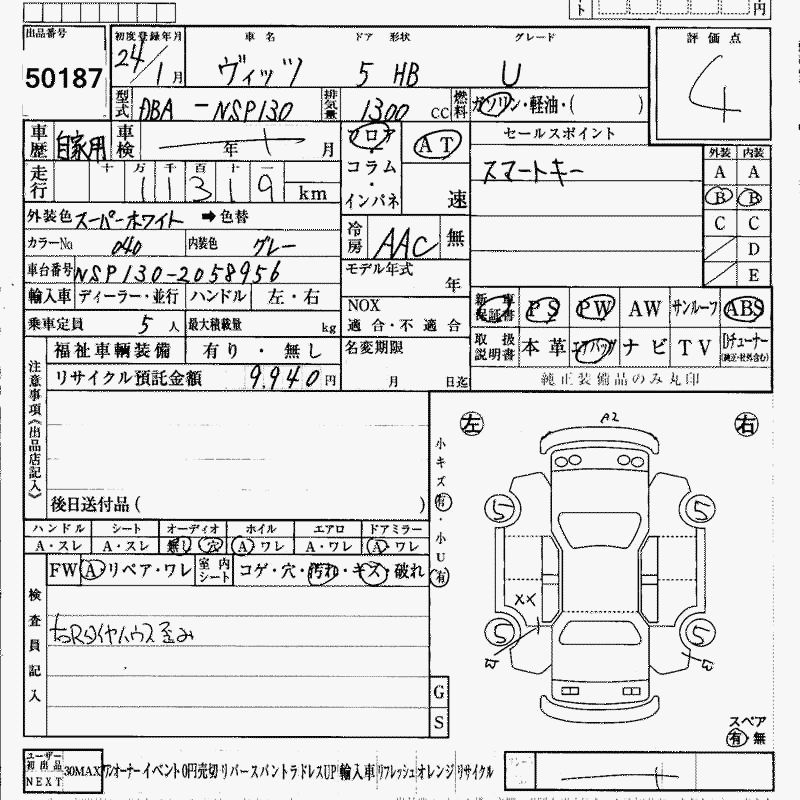 ト
円
出品番号 初度登録年月 車名 ドア 形状 グレード 評価点
50187 24/1月 ヴィッツ 5 HB U 4
型式 DBA-NSP130 排気量 1300 CC 燃料 ガソリン・軽油・( )
車歴 自家用 車検 年 月 フロア AT セールスポイント
コラム スマートキー 外装 内装
走行 十 万 千 百 十 一 A A
11319 km インパネ 速 B B
外装色 スーパーホワイト ➡色替 冷房 AAC 無 C C
カラーNo 040 内装色 グレー D
車台番号 NSP130-2058956 モデル年式 年 E
輸入車 ディーラー・並行 ハンドル 左・右 NOX 新車保証書 PS PW AW サンルーフ ABS
乗車定員 5人 最大積載量 kg 適合・不適合
福祉車輌装備 有り・無し 名変期限 取扱説明書 本革 エアバッグ ナビ TV Dチューナー
(純正・社外含む)
リサイクル預託金額 9,940円 月 日迄 純正装備品のみ丸印
注意事項《出品店記入》
左 A2 右
小キズ有・小U有
後日送付品( )
ハンドル シート オーディオ ホイル エアロ ドアミラー
A・スレ A・スレ 無し 穴 A・ワレ A・ワレ A・ワレ
FW A・リペア・ワレ 室内シート コゲ・穴・汚れ・キズ・破れ
5 5
XX
検査員記入
右Rタイヤハウス歪み
5 5
W W
G
S
スペア
有 無
ユーザー 初出品 NEXT 30MAX ワンオーナー イベント 0円売切 リバース バントラ ドレスUP 輸入車 リフレッシュ オレンジ リサイクル